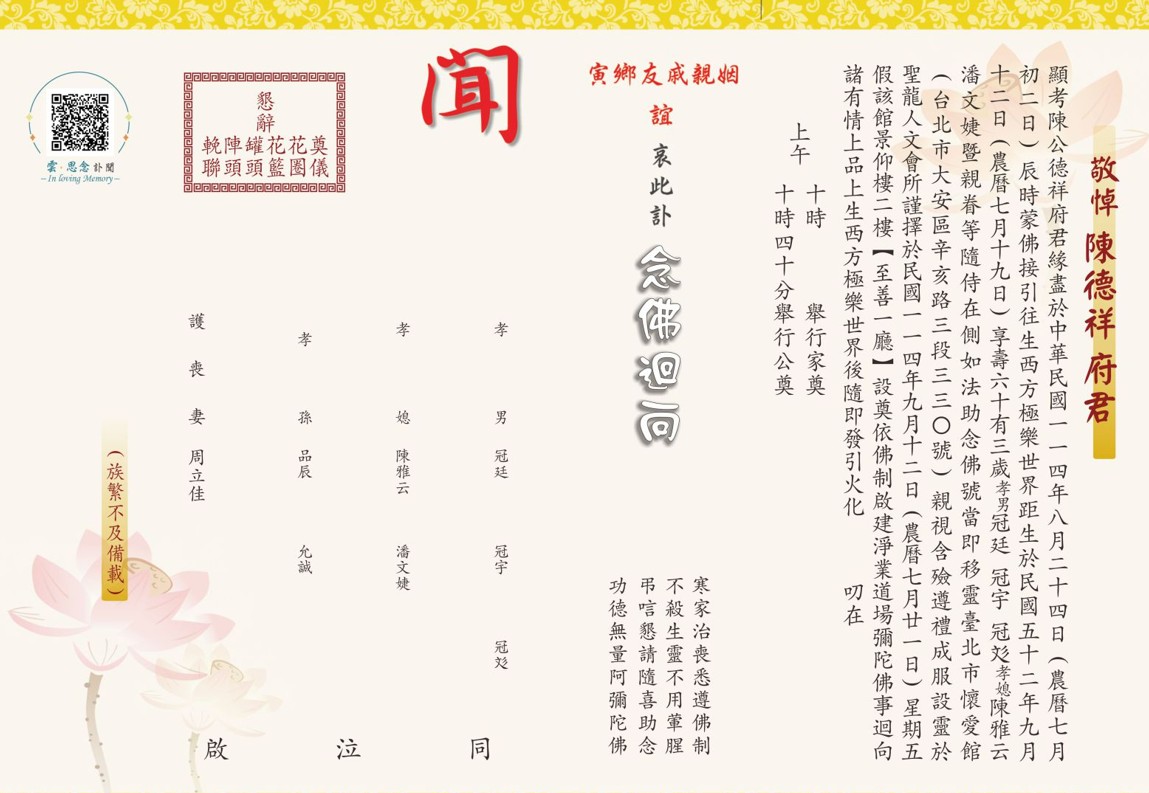 敬悼 陳德祥 府君
顯考陳公德祥府君緣盡於中華民國一一四年八月二十四日(農曆七月
初二日)辰時蒙佛接引往生西方極樂世界距生於民國五十二年九月
十二日(農曆七月十九日)享壽六十有三歲孝男冠廷 冠宇 冠彣孝媳陳雅云
潘文婕暨親眷等隨侍在側如法助念佛號當即移靈臺北市懷愛館
(台北市大安區辛亥路三段三三〇號)親視含殮遵禮成服設靈於
聖龍人文會所謹擇於民國一一四年九月十二日(農曆七月廿一日)星期五
假該館景仰樓二樓【至善一廳】設奠依佛制啟建淨業道場彌陀佛事迴向
諸有情上品上生西方極樂世界後隨即發引火化 叨在
上午
十時 舉行家奠
十時四十分舉行公奠
寅鄉友戚親姻
誼
哀此訃
念佛迴向
寒家治喪悉遵佛制
不殺生靈不用葷腥
弔唁懇請隨喜助念
功德無量阿彌陀佛
聞
孝 男 冠廷 冠宇 冠彣
孝 媳 陳雅云 潘文婕
孝 孫 品辰 允誠
護喪妻 周立佳
同 泣 啟
(族繁不及備載)
懇辭
輓陣罐花花奠
聯頭頭籃圈儀
雲·思念 訃聞
In loving Memory